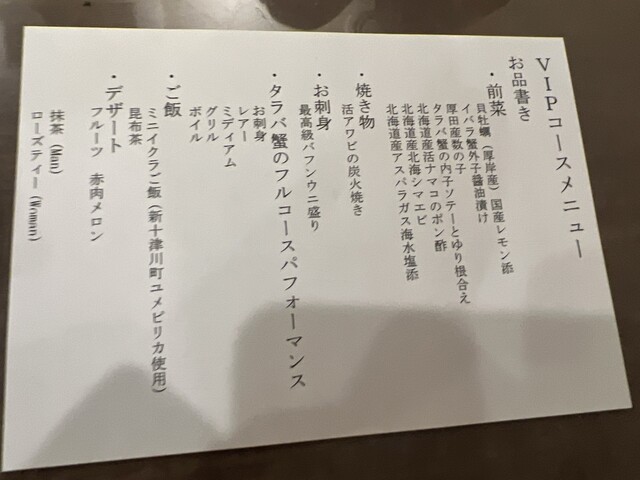 VIPコースメニュー
お品書き
・前菜
貝牡蠣（厚岸産）国産レモン添
イバラ蟹外子醤油漬け
厚田産数の子
タラバ蟹の内子ソテーとゆり根合え
北海道産活ナマコのポン酢
北海道産北海シマエビ
北海道産アスパラガス海水塩添
・焼き物
活アワビの炭火焼き
・お刺身
最高級バフンウニ盛り
・タラバ蟹のフルコースパフォーマンス
お刺身
レアー
ミディアム
グリル
ボイル
・ご飯
ミニイクラご飯（新十津川町ユメピリカ使用）
昆布茶
・デザート
フルーツ　赤肉メロン
抹茶（Men）
ローズティー（Women）